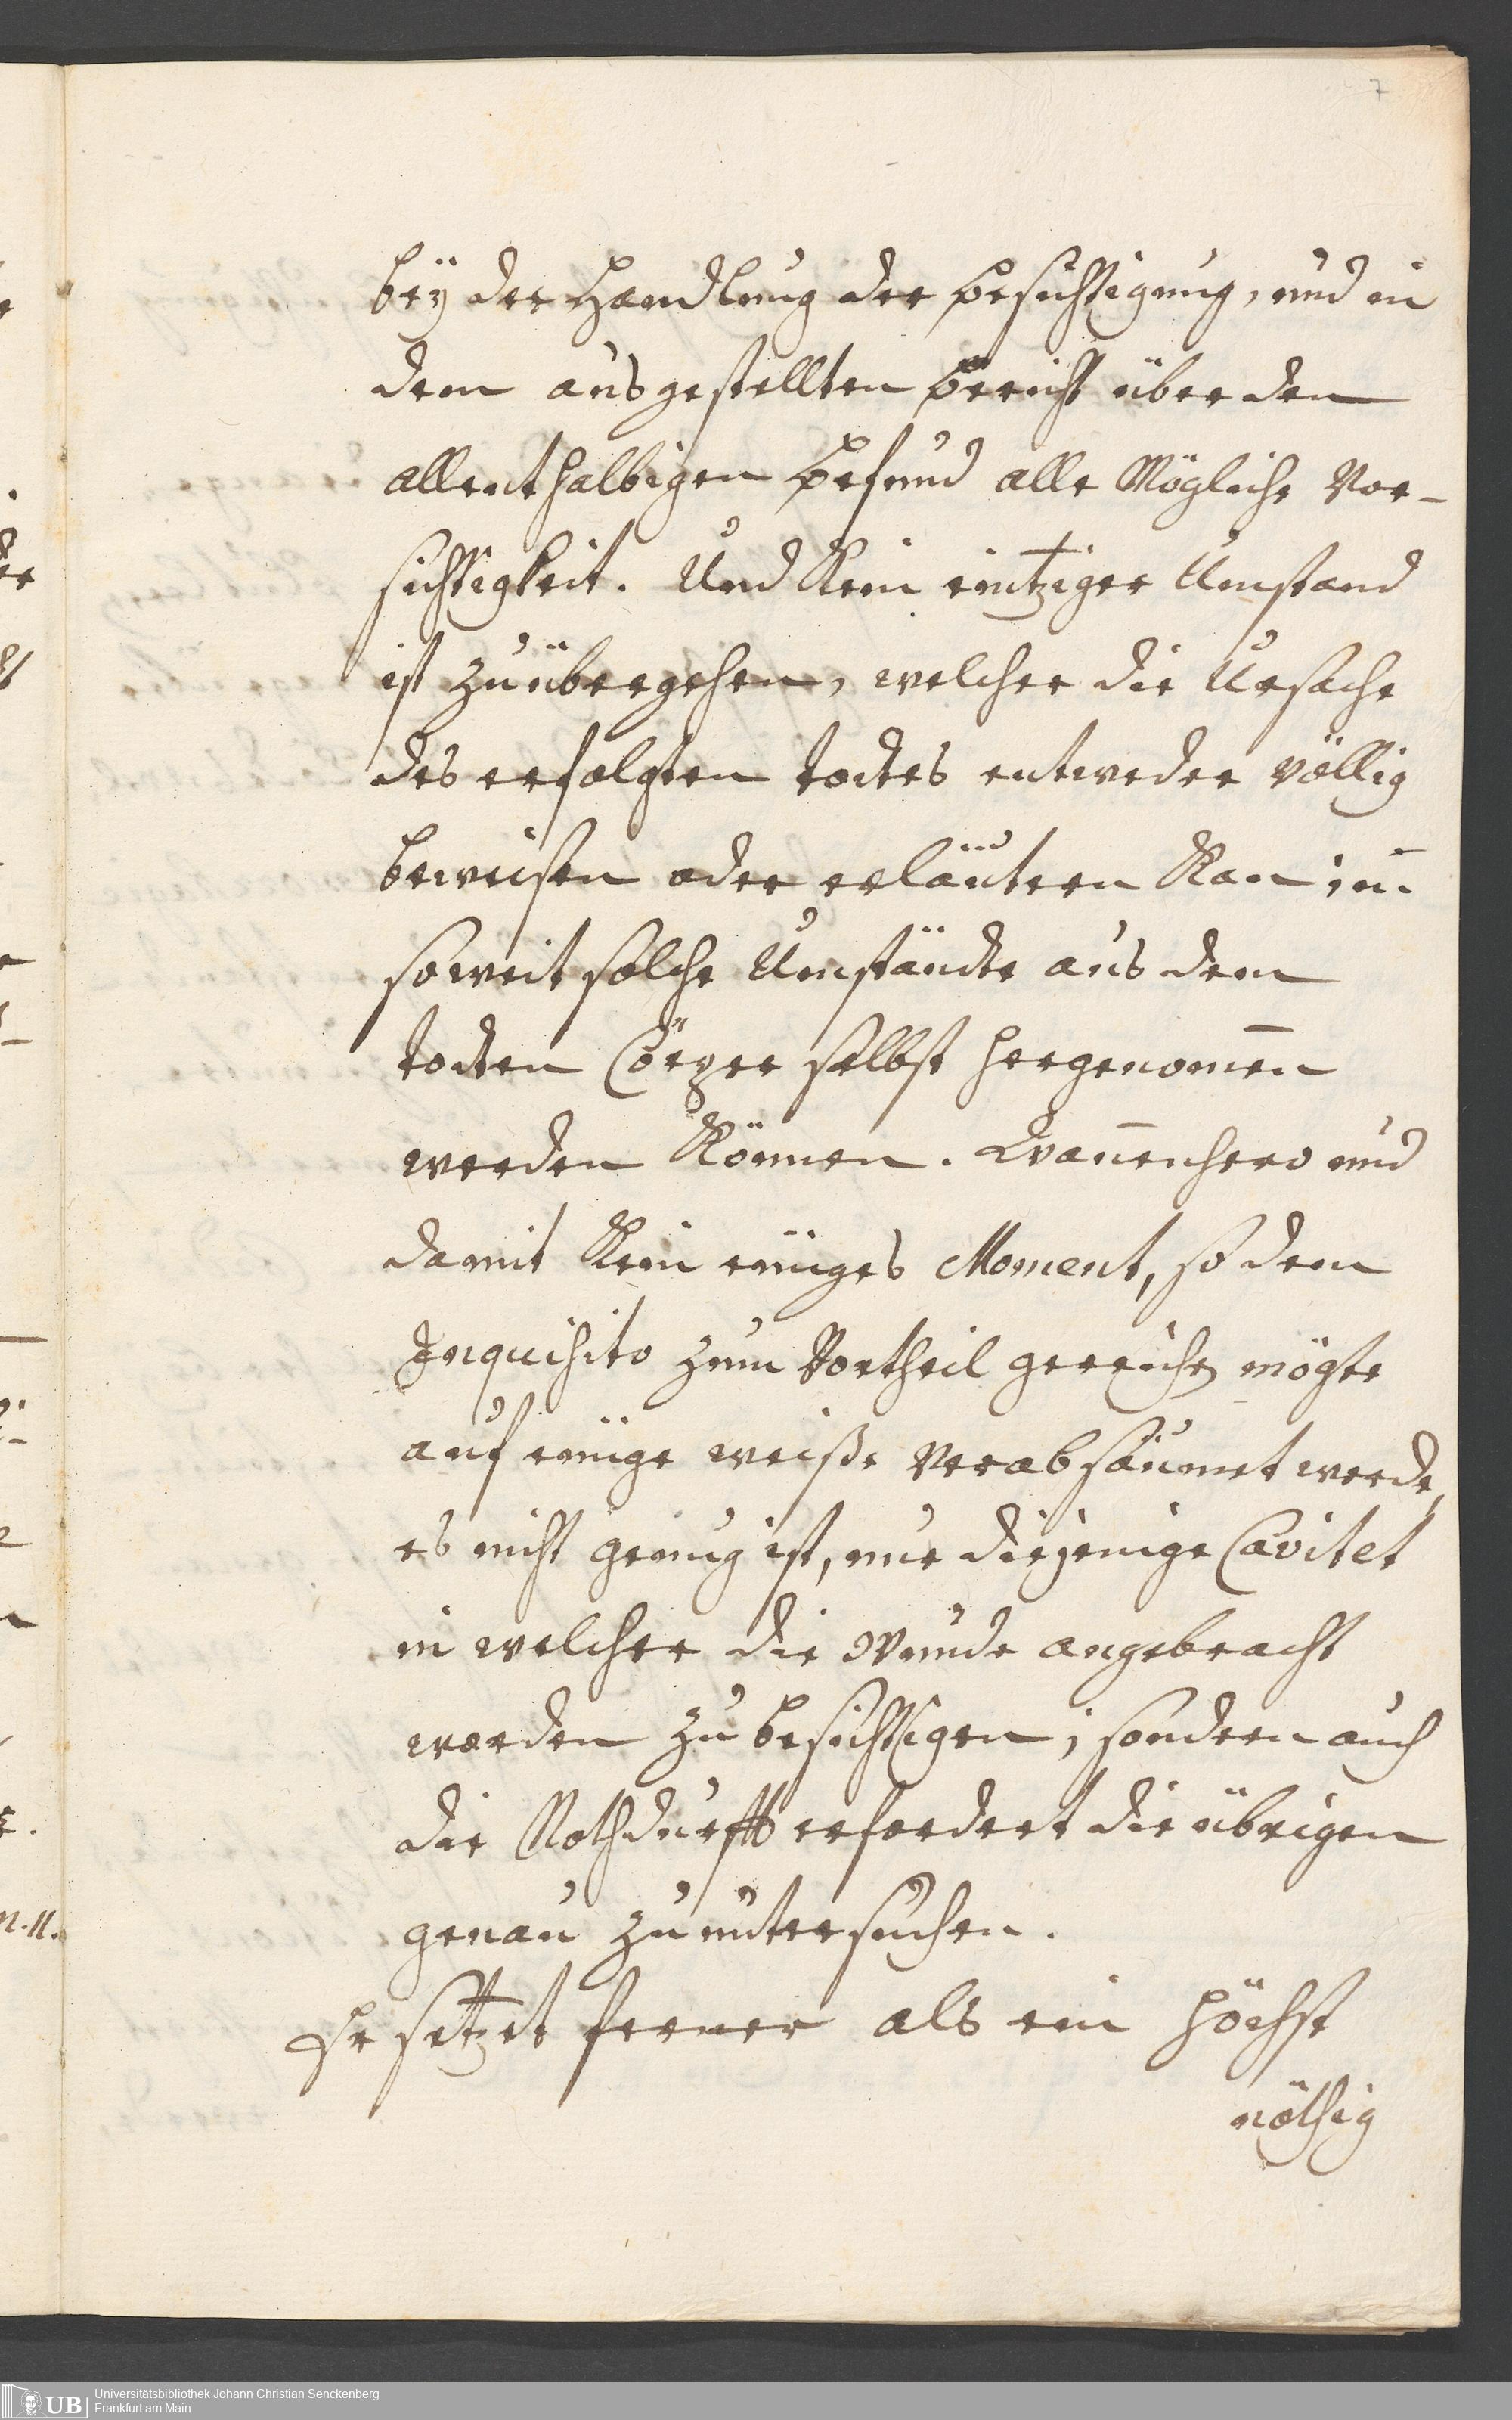 7
beÿ der Handlung der Besichtigung, und in
dem ausgestellten Bericht über den
allenthalbigen Befund alle Mögliche Vor-
sichtigkeit. Und Kein eintziger Umstand
ist zu übergehen, welcher die Ursache
des erfolgten todtes entweder völlig
beweisen oder erläutern Kan in
soweit solche Umständte aus dem
todten Cörper selbst hergenom̄en
werden Können. Dan̄enhero und
damit Kein einiges Moment, so dem
Inquisito zum Vortheil gereichen mögte
auf einige weiße Verabsäumet werde,
es nicht genug ist, nur diejenige Cavitet
in welcher die Wunde angebracht
worden zu besichtigen; sondern auch
die Nothdurfft erfordert die übrigen
genau zu untersuchen.
Er setzet ferner als ein höchst
nöthig
UB
Universitätsbibliothek Johann Christian Senckenberg
Frankfurt am Main